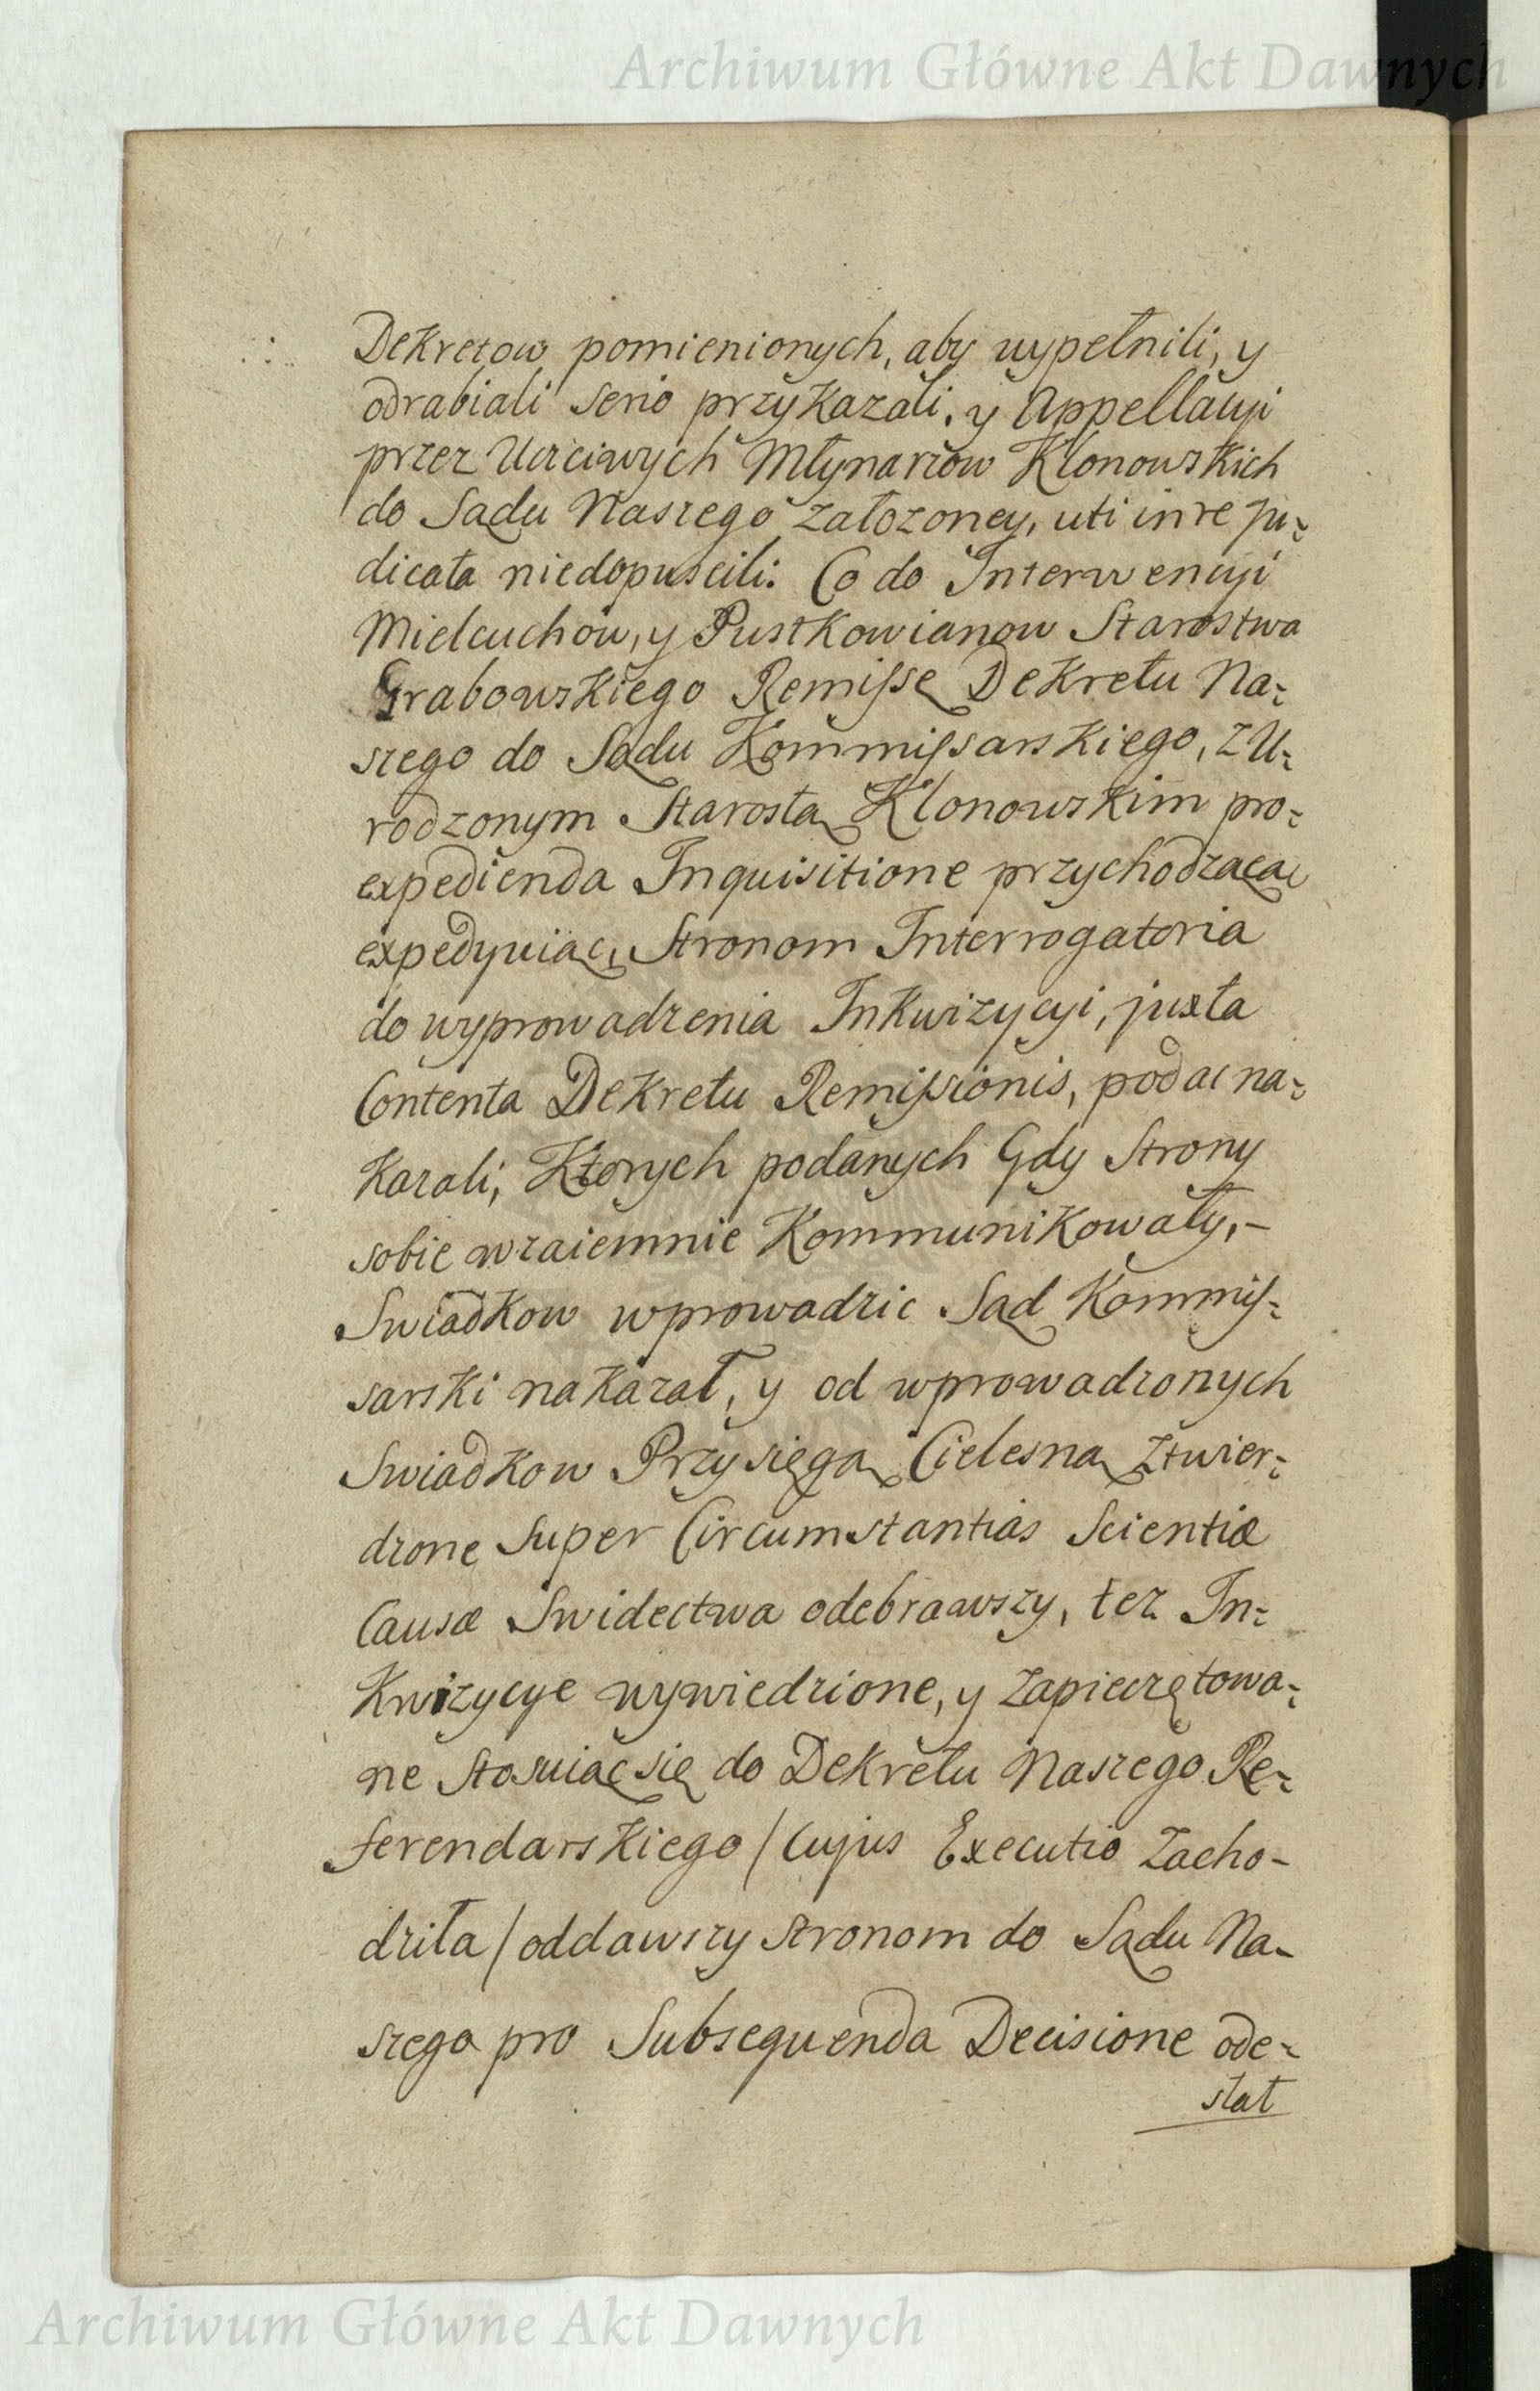 Archiwum Główne Akt Dawnych
Dekretow pomienionych, aby wypełnili, y
odrabiali serio przykazali, y Appellacyi
przez Ucżciwych Młynarzow Klonowskich
do Sądu Naszego założoney, uti in re ju-
dicata niedopuscili. Co do Interwencyi
Mielcuchow, y Pustkowianow Starostwa
Grabowskiego Remissę Dekretu Na-
szego do Sądu Kommissarskiego, z U-
rodzonym Starostą Klonowskim pro
expedienda Inquisitione przychodzącą
expedyuiąc, Stronom Interrogatoria
do wyprowadzenia Inkwizycyi, juxta
Contenta Dekretu Remissionis, podac na-
kazali, Ktorych podanych Gdy Strony
sobie wzaiemnie Kommunikowały, -
Swiadkow wprowadzic Sąd Kommis-
sarski nakazał, y od wprowadzonych
Swiadkow Przysięgą Cielesną Ztwier-
dzone Super Circumstantias Scientiæ
Causæ Swidectwa odebrawszy, tez In-
kwizycye wywiedzione, y zapieczętowa-
ne stosuiąc się do Dekretu Naszego Re-
ferendarskiego / Cujus Executio zacho-
dziła / oddawszy Stronom do Sądu Na-
szego pro Subsequenda Decisione ode-
słał
Archiwum Główne Akt Dawnych